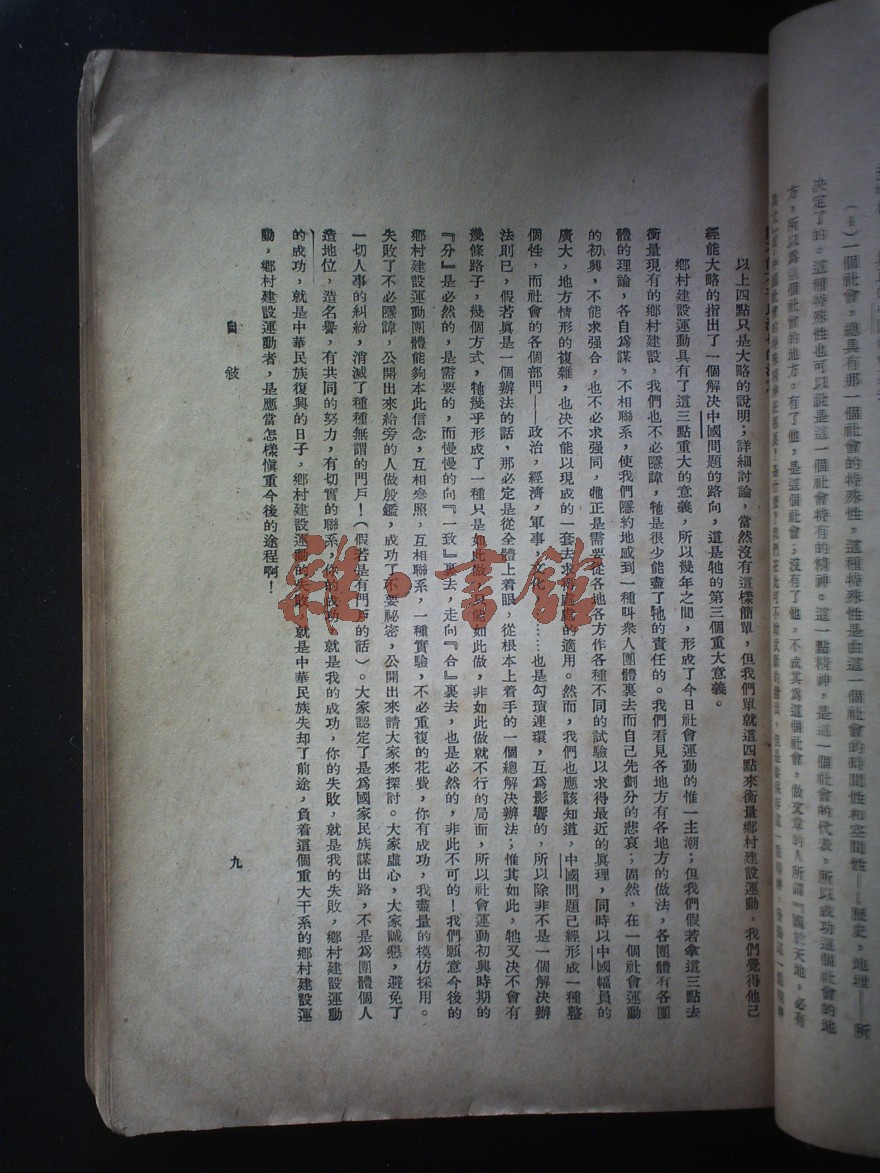 (七)一個社會,總具有那一個社會的特殊性,這種特殊性是由這一個社會的時間性和空間性——歷史,地理——所
決定了的。這種特殊性也可以說是這一個社會特有的精神。這一點精神,是這一個社會的代表,所以成功這個社會的地
方,所以為這個社會的地方。有了他,是這個社會;沒有了他,不成其為這個社會,做文章的人所謂『國於天地,必有
以上四點只是大略的說明;詳細討論,當然沒有這樣簡單,但我們單就這四點來衡量鄉村建設運動,我們覺得他已
經能大略的指出了一個解決中國問題的路向,這是牠的第三個重大意義。
鄉村建設運動具有了這三點重大的意義,所以幾年之間,形成了今日社會運動的惟一主潮;但我們假若拿這三點去
衡量現有的鄉村建設,我們也不必隱諱,牠是很少能盡了牠的責任的。我們看見各地方有各地方的做法,各團體有各團
體的理論,各自為謀,不相聯系,使我們隱約地感到一種叫衆人團體裏去而自己先劃分的悲哀;固然,在一個社會運動
的初興,不能求强合,也不必求强同,牠正是需要從各地各方作各種不同的試驗以求得最近的眞理,同時以中國幅員的
廣大,地方情形的複雜,也决不能以現成的一套去求得處處的適用。然而,我們也應該知道,中國問題已經形成一種整
個性,而社會的各個部門——政治,經濟,軍事,文化……也是勾瑣連環,互為影響的,所以除非不是一個解决辦
法則已,假若眞是一個辦法的話,那必定是從全體上着眼,從根本上着手的一個總解决辦法;惟其如此,牠又决不會有
幾條路子,幾個方式,牠幾乎形成了一種只是如此做,只能如此做,非如此做就不行的局面,所以社會運動初興時期的
『分』是必然的,是需要的,而慢慢的向『一致』裏去,走向『合』裏去,也是必然的,非此不可的!我們願意今後的
鄉村建設運動團體能夠本此信念,互相參照,互相聯系,一種實驗,不必重複的花費,你有成功,我盡量的模仿採用。
失敗了不必隱諱,公開出來給旁的人做殷鑑,成功了不要祕密,公開出來請大家來探討。大家虛心,大家誠懇,避免了
一切人事的糾紛,消滅了種種無謂的門戶!(假若是有門戶的話)。大家認定了是為國家民族謀出路,不是為團體個人
造地位,造名譽,有共同的努力,有切實的聯系,你的成功,就是我的成功,你的失敗,就是我的失敗,鄉村建設運動
的成功,就是中華民族復興的日子,鄉村建設運動的失敗,就是中華民族失却了前途,負着這個重大干系的鄉村建設運
動,鄉村建設運動者,是應當怎樣愼重今後的途程啊!
自敍
九
雜·書館